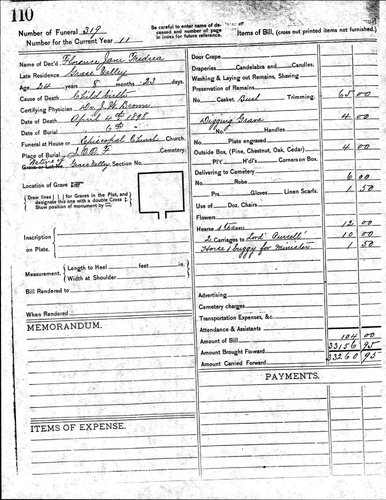 110
Number of Funeral 319
Number for the Current Year 11
Be careful to enter name of deceased and number of page in index for future reference.
Items of Bill, (cross out printed items not furnished.)
Name of Dec'd Florence Jane
Late Residence Grass Valley
Age 24 years 8 months 23 days
Cause of Death Child birth
Certifying Physician Dr. J. W. Brown
Date of Death April 4th 1898
Date of Burial 6th
Funeral at House or Episcopal Church Church.
Place of Burial I.O.O.F. Cemetery.
Native of Grass Valley Section No.
Location of Grave
Draw lines for Graves in the Plot, and
designate this one with a double Cross
Show position of monument by
Inscription
on Plate.
Measurement. Length to Heel feet in.
Width at Shoulder
Bill Rendered
When Rendered
MEMORANDUM.
ITEMS OF EXPENSE.
Door Crape
Draperies Candelabra and Candles.
Washing & Laying out Remains, Shaving
Preservation of Remains
No. Casket. Trimming. 65 00
Digging Grave 4 00
No. Handles
Plate engraved
Outside Box, (Pine, Chestnut, Oak, Cedar) 4 00
P'l'y H'd's Corners on Box.
Delivering to Cemetery 6 00
No. Robe 1 50
Prs. Gloves Linen Scarfs.
Use of Doz. Chairs
Flowers
Hearse & team 12 00
2 Carriages to 10 00
Horse & buggy for Minister 1 50
Advertising
Cemetery charges
Transportation Expenses, &c.
Attendance & Assistants
Amount of Bill 104 00
Amount Brought Forward 33156 95
Amount Carried Forward 33260 95
PAYMENTS.